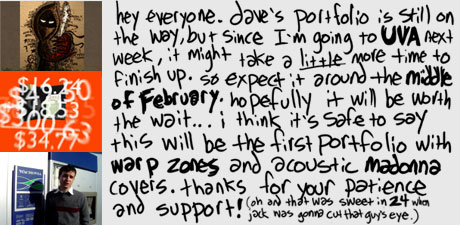 hey everyone. dave's portfolio is still on
the way, but since I'm going to UVA next
week, it might take a little more time to
finish up. so expect it around the middle
of February. hopefully it will be worth
the wait... i think it's safe to say
this will be the first portfolio with
warp zones and acoustic madonna
covers. thanks for your patience
and support! (oh and that was sweet in 24 when
jack was gonna cut that guy's eye.)
$16.24
$34.77